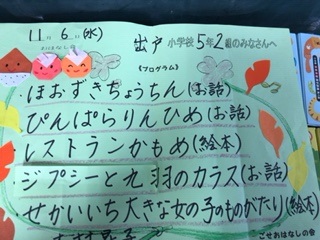 11月6日(水)
おはなしの会
出戸小学校5年2組のみなさんへ
《プログラム》
・ほおずきちょうちん(お話)
・ぴんぱらりんひめ(お話)
・レストランかもめ(絵本)
・ジプシーと九羽のカラス(お話)
・せかいいち大きな女の子のものがたり(絵本)
こせおはなしの会